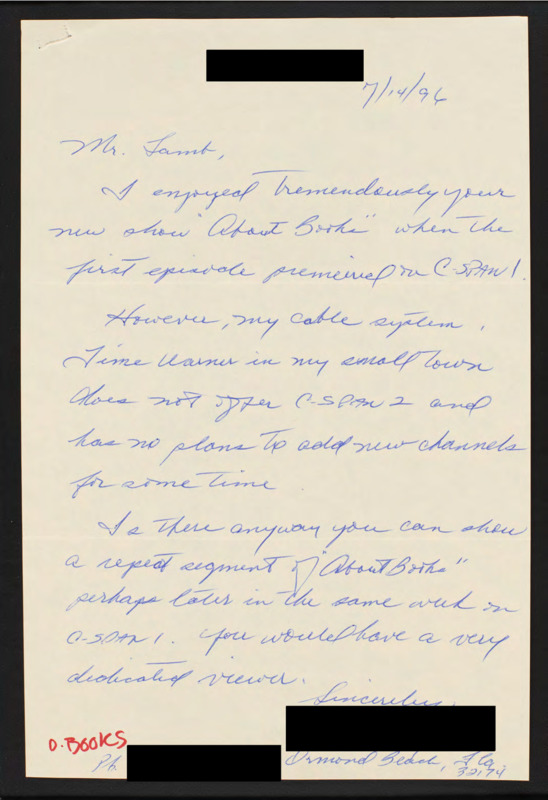 7/14/96
Mr. Lamb,
I enjoyed tremendously your
new show "About Books" when the
first episode premeired on C-SPAN 1.
However, my cable system,
Time Warner in my small town
does not offer C-SPAN 2 and
has no plans to add new channels
for some time
Is there anyway you can show
a repeat segment of "About Books"
perhaps later in the same week on
C-SPAN 1. You would have a very
dedicated viewer.
Sincerely,
O. BOOKS
Ormond Beach, Fla
Ph.
32174